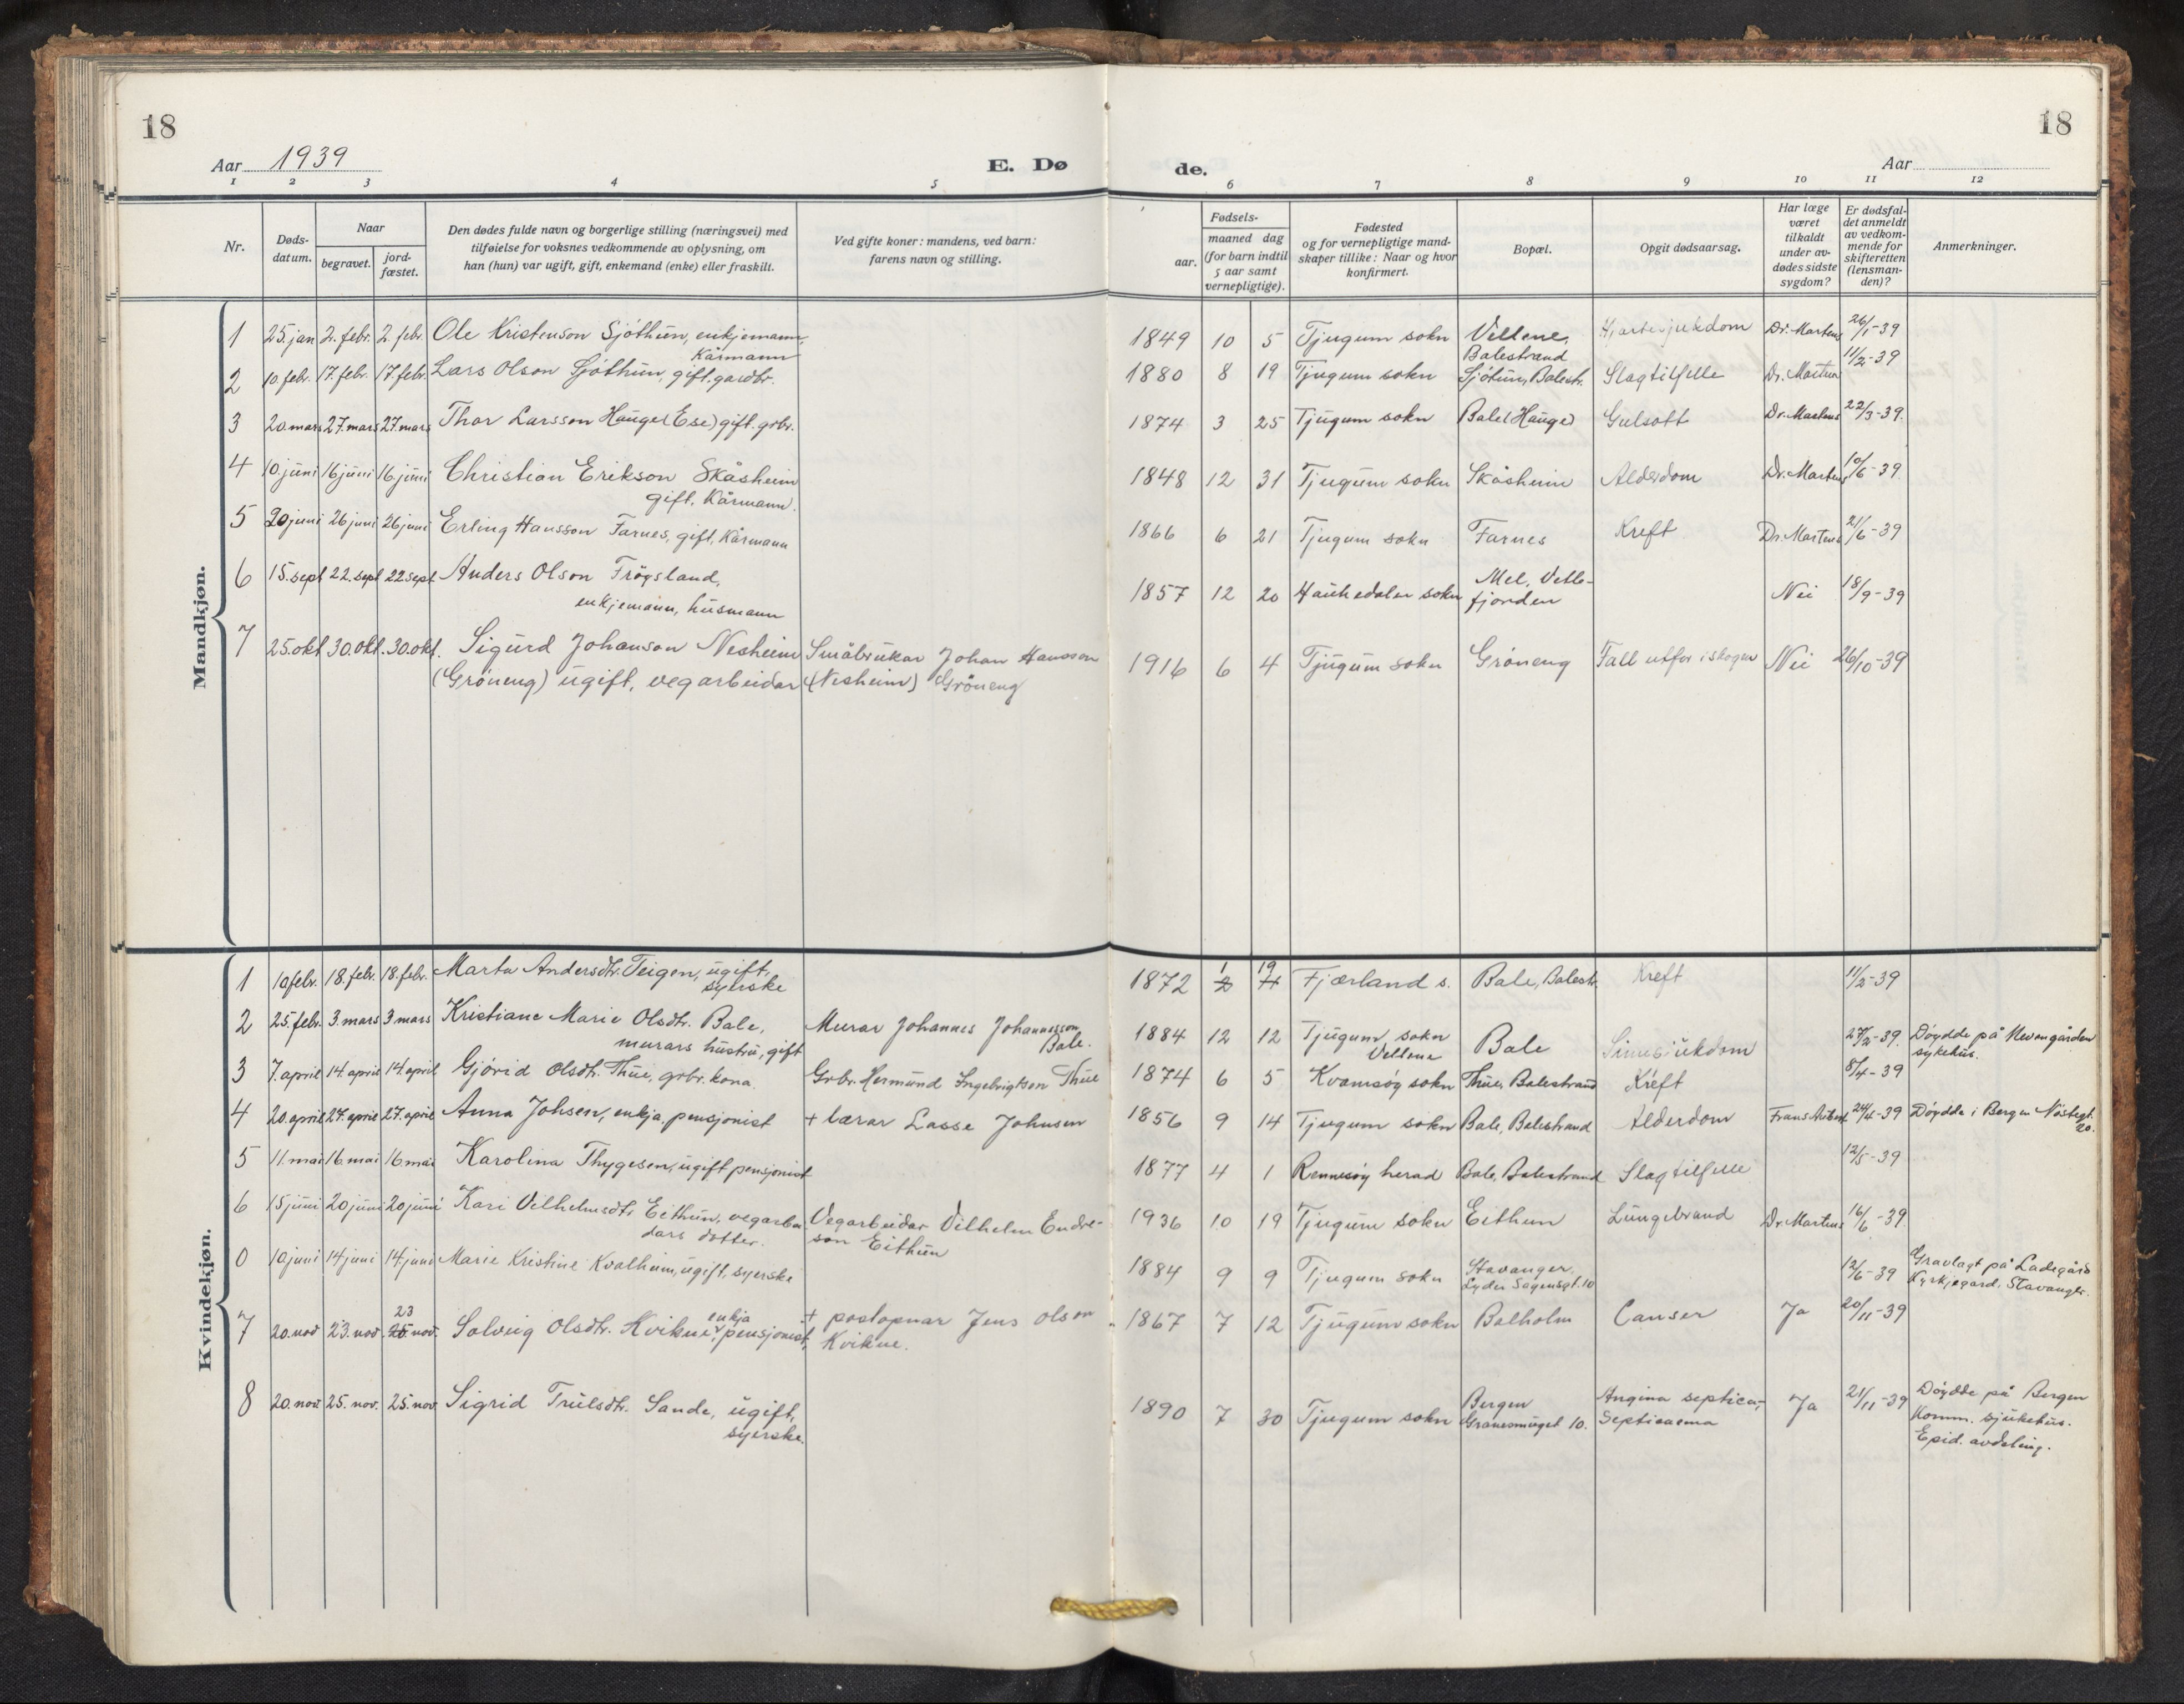 18
18
Aar 1939
E. Dø
de.
Aar
1 2 3 4 5 6 7 8 9 10 11 12
Nr.
Døds-
datum.
Naar
begravet.
jord-
fæstet.
Den dødes fulde navn og borgerlige stilling (næringsvei) med
tilføielse for voksnes vedkommende av oplysning, om
han (hun) var ugift, gift, enkemand (enke) eller fraskilt.
Ved gifte koner: mandens, ved barn:
farens navn og stilling.
Fødsels-
aar.
maaned dag
(for barn indtil
5 aar samt
vernepligtige).
Fødested
og for vernepligtige mand-
skaper tillike: Naar og hvor
konfirmert.
Bopæl.
Opgit dødsaarsag.
Har læge
været
tilkaldt
under av-
dødes sidste
sygdom?
Er dødsfal-
det anmeldt
av vedkom-
mende for
skifteretten
(lensman-
den)?
Anmerkninger.
Mandkjøn.
1 25. jan 2. febr. 2. febr. Ole Kristenson Sjøthun, enkjemann, 1849 10 5 Tjugum sokn Vetlene, Hjartesjukdom Dr. Martens 26/1-39
Kårmann Balestrand
2 10. febr. 17. febr. 17 febr. Lars Olson Sjøthun, gift, gardbr. 1880 8 19 Tjugum sokn Sjøtun, Balestr. Slagtilfelle Dr. Martens 11/2-39
3 20. mars 27. mars 27. mars Thor Larsson Hauge (Ese) gift. grbr. 1874 3 25 Tjugum sokn Bale (Hauge) Gulsott Dr. Martens 22/3-39.
4 10. juni 16 juni 16. juni Christian Erikson Skåsheim 1848 12 31 Tjugum sokn Skåsheim Alderdom Dr. Martens 10/6-39
gift, Kårmann.
5 20 juni 26 juni 26 juni Erling Hansson Farnes, gift, Kårmann 1866 6 21 Tjugum sokn Farnes Kreft Dr. Martens 21/6-39
6 15. sept 22. sept 22 sept Anders Olson Frøysland, 1857 12 20 Haukedalen sokn Mel, Vetle- Nei 18/9-39
enkjemann, husmann fjorden
7 25. okt 30. okt. 30. okt. Sigurd Johanson Nesheim Småbrukar Johan Hansson 1916 6 4 Tjugum sokn Grøneng Fall utfor i skogen Nei 26/10-39
(Grøneng) ugift, vegarbeidar (Nesheim) Grøneng
Kvindekjøn.
1 10 febr. 18. febr. 18. febr. Marta Andersdtr. Teigen, ugift, 1872 1 19 Fjærland s. Bale, Balestr. Kreft 11/2-39
syerske
2 25. febr. 3. mars 3 mars Kristiane Marie Olsdtr. Bale, Murar Johannes Johannesson 1884 12 12 Tjugum sokn Bale Sinnssjukdom 27/2-39. Døydde på Nevengården
murars hustru, gift Bale. Vetlene sykehus.
3 7. april 14. april 14. april Gjørid Olsdt. Thue, grbr. kona. Grbr. Hermund Ingebrigtson Thue 1874 6 5 Kvamsøy sokn Thue, Balestrand Kreft 8/4-39
4 20. april 27. april 27. april Anna Johsen, enkja, pensjonist + lærar Lasse Johnsen 1856 9 14 Tjugum sokn Bale, Balestrand Alderdom 24/4-39 Døydde i Bergen Nøstegt.
20.
5 11. mai 16 mai 16 mai Karolina Thygesen, ugift pensjonist 1877 4 1 Rennesøy herad Bale, Balestrand Slagtilfelle 12/5-39
6 15 juni 20 juni 20 juni Kari Vilhelmsdtr Eithun, vegarbei- Vegarbeidar Vilhelm Endre- 1936 10 19 Tjugum sokn Eithun Lungebrand Dr. Martens 16/6-39.
dars dotter. son Eithun
0 10. juni 14 juni 14. juni Marie Kristine Kvalheim, ugift, syerske 1884 9 9 Tjugum sokn Stavanger, 12/6-39 Gravlagt på Ladegård
Lyder Sagensgt. 10 Kyrkjegard. Stavanger.
7 20. nov 23. nov. 23 nov. Solveig Olsdtr. Kvikne, enkja pensjonist, + postopnar Jens Olson 1867 7 12 Tjugum sokn Balholm Canser Ja 20/11-39
Kvikne.
8 20. nov 25. nov. 25. nov Sigrid Trulsdtr. Sande, ugift, 1890 7 30 Tjugum sokn Bergen Angina septica, Ja 21/11-39 Døydde på Bergen
syerske. 10. Septicaema Komm. sjukehus.
Epid. avdeling.